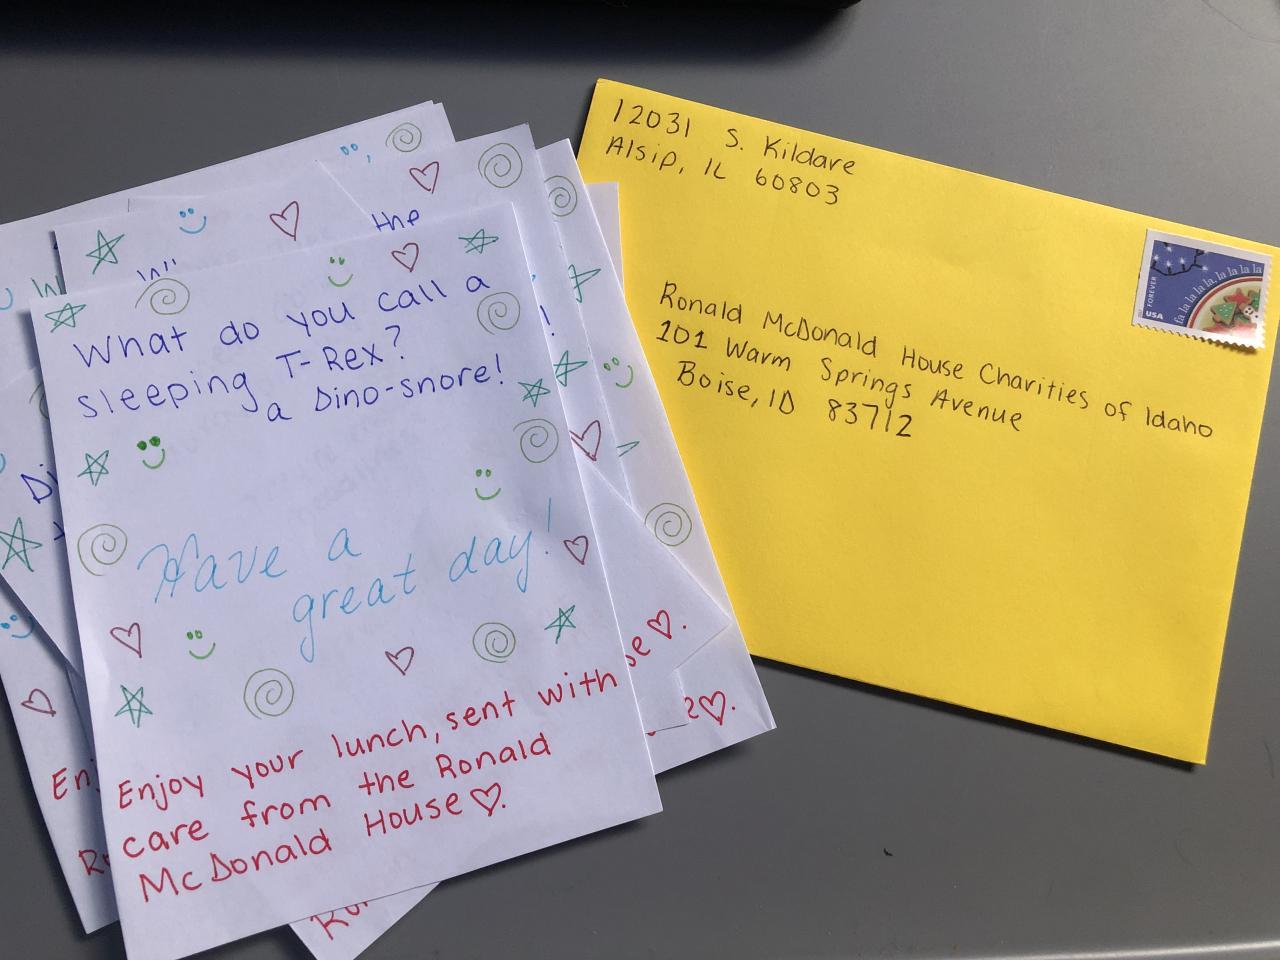 What do you call a
sleeping T-Rex?
a Dino-snore!
Have a
great day!
Enjoy your lunch, sent with
care from the Ronald
McDonald House ♡.
the
12031 S. Kildare
Alsip, IL 60803
Ronald McDonald House Charities of Idaho
101 Warm Springs Avenue
Boise, ID 83712
FOREVER
USA
fa la la la la, la la la la